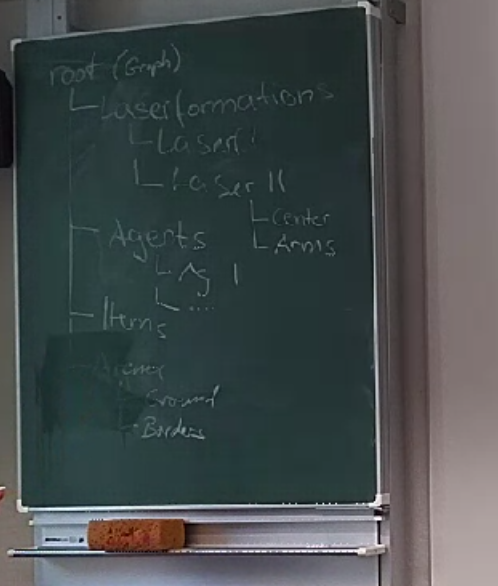 root (Graph)
Laserformations
Laser I
Laser II
Center
Arms
Agents
Ag 1
....
Items
Arena
Ground
Borders